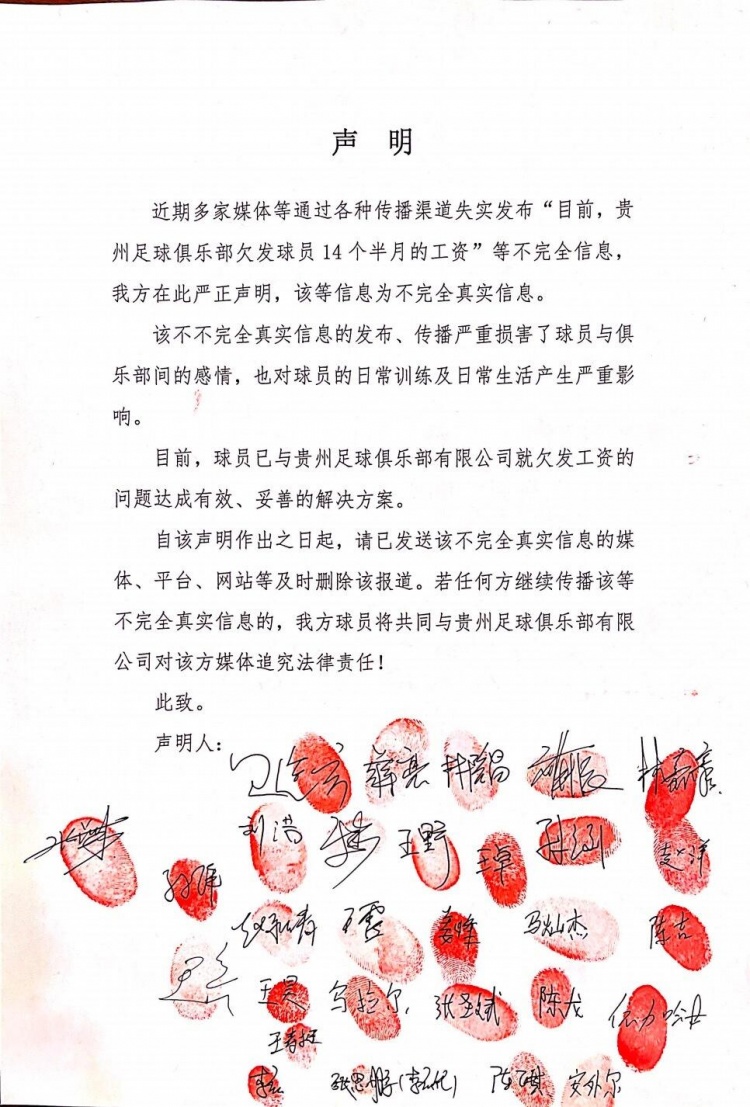 声 明
近期多家媒体等通过各种传播渠道失实发布“目前，贵
州足球俱乐部欠发球员14个半月的工资”等不完全信息，
我方在此严正声明，该等信息为不完全真实信息。
该不不完全真实信息的发布、传播严重损害了球员与俱
乐部间的感情，也对球员的日常训练及日常生活产生严重影
响。
目前，球员已与贵州足球俱乐部有限公司就欠发工资的
问题达成有效、妥善的解决方案。
自该声明作出之日起，请已发送该不完全真实信息的媒
体、平台、网站等及时删除该报道。若任何方继续传播该等
不完全真实信息的，我方球员将共同与贵州足球俱乐部有限
公司对该方媒体追究法律责任！
此致。
声明人：
刘浩 王野 王卓 赵洋
姜峰 马灿杰 陈吉
王昊 乌拉尔 张圣斌 陈龙 依力哈木
陈琪 安外尔